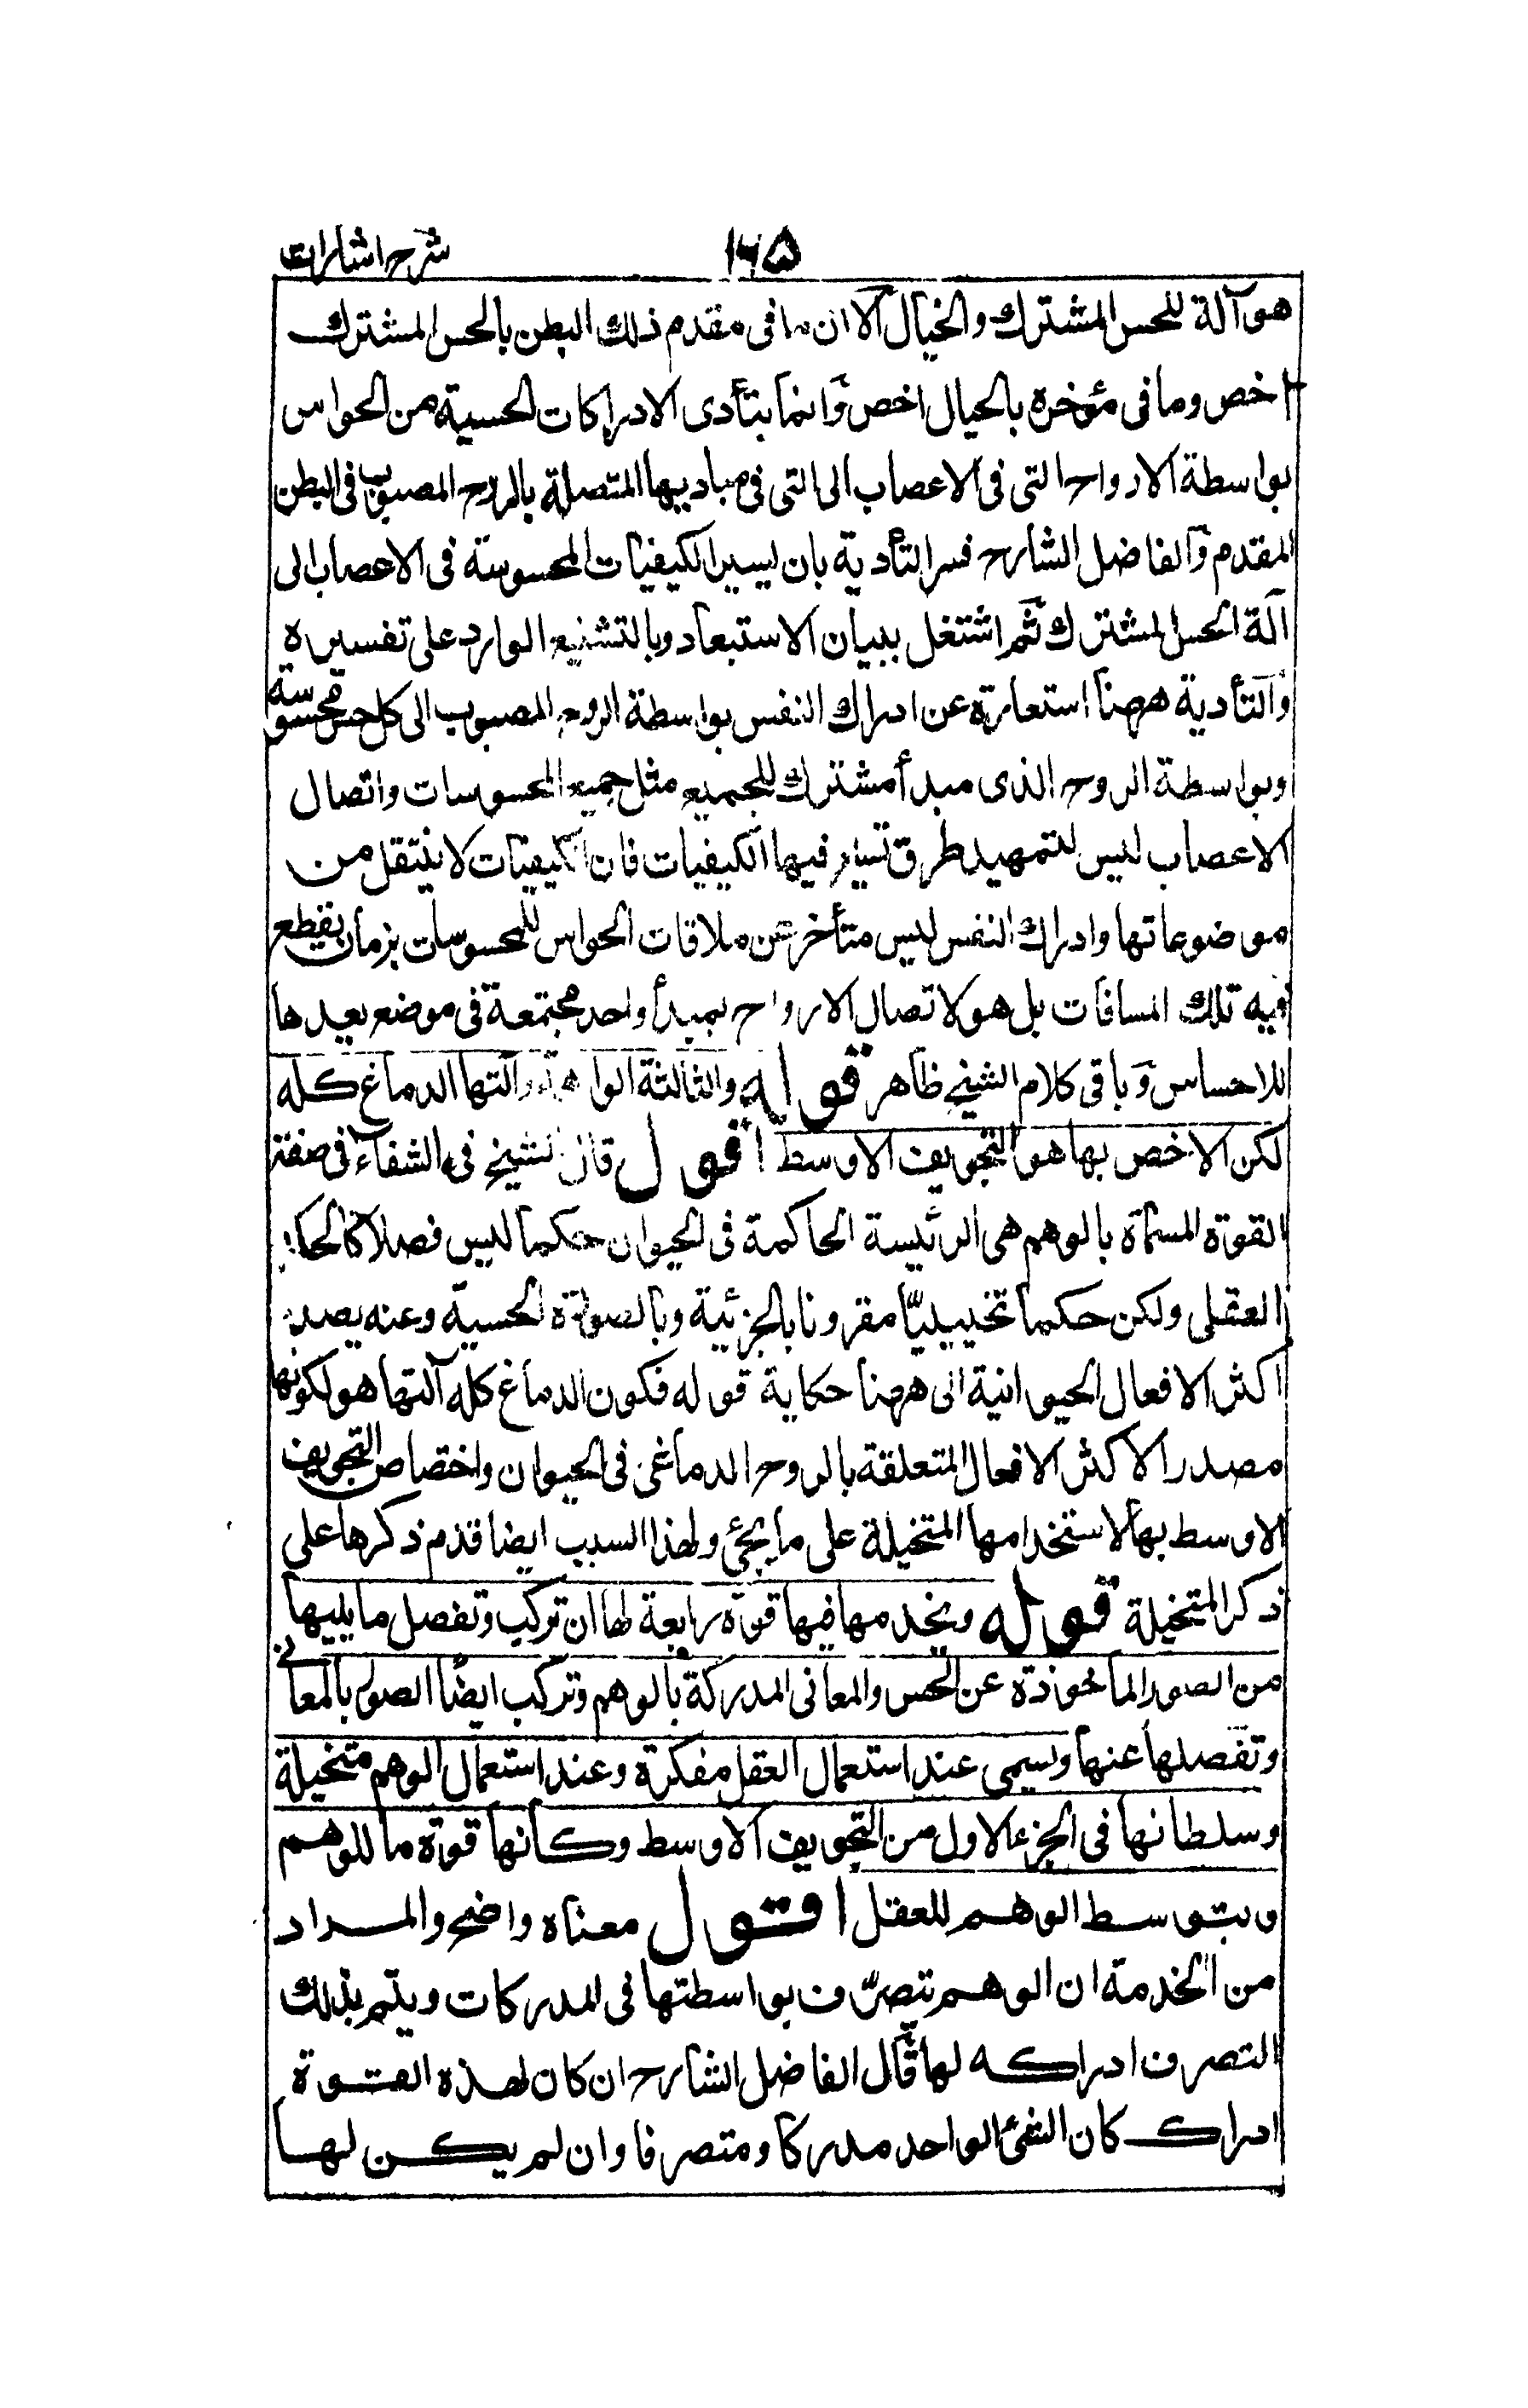 شرح اشارات ١٦٥
هو آلة للحس المشترك والخيال الا ان ما فى مقدم ذلك البطن بالحس المشترك
اخص وما فى مؤخره بالخيال اخص وانما يتأدى الادراكات الحسية من الحواس
بواسطة الارواح التى فى الاعصاب الى التى فى مباديها المتصلة بالروح المصبوب فى البطن
المقدم والفاضل الشارح فسر التأدية بان يسير الكيفيات المحسوسة فى الاعصاب الى
آلة الحس المشترك ثم اشتغل ببيان الاستبعاد وبالتشنيع الوارد على تفسيره
والتأدية ههنا استعارة عن ادراك النفس بواسطة الروح المصبوب الى كل حس محسوسة
وبواسطة الروح الذى مبدأ مشترك للجميع مثل جميع المحسوسات واتصال
الاعصاب ليس لتمهيد طرق تسير فيها الكيفيات فان الكيفيات لا ينتقل من
موضوعاتها وادراك النفس ليس متأخر عن ملاقات الحواس للمحسوسات بزمان يقطع
فيه تلك المسافات بل هو لاتصال الارواح بمبدأ واحد مجتمعة فى موضع يعدها
للاحساس وباقى كلام الشيخ ظاهر قوله والثالثة الوهم وآلتها الدماغ كله
لكن الاخص بها هو التجويف الاوسط اقول قال الشيخ فى الشفاء فى صفة
القوة المسماة بالوهم هى الرئيسة الحاكمة فى الحيوان حكما ليس فصلا كالحكم
العقلى ولكن حكما تخييليّا مقرونا بالجزئية وبالصورة الحسية وعنه يصدر
اكثر الافعال الحيوانية الى ههنا حكاية قوله فكون الدماغ كله آلتها هو لكونها
مصدر الاكثر الافعال المتعلقة بالروح الدماغى فى الحيوان واختصاص التجويف
الاوسط بها لاستخدامها المتخيلة على ما يجئ ولهذا السبب ايضا قدم ذكرها على
ذكر المتخيلة قوله ويخدمها فيها قوة رابعة لها ان تركب وتفصل ما يليها
من الصور المأخوذة عن الحس والمعانى المدركة بالوهم وتركب ايضا الصور بالمعانى
وتفصلها عنها وتسمى عند استعمال العقل مفكرة وعند استعمال الوهم متخيلة
وسلطانها فى الجزء الاول من التجويف الاوسط وكأنها قوة ما للوهم
وبتوسط الوهم للعقل اقول معناه واضح والمراد
من الخدمة ان الوهم يتصرّف بواسطتها فى المدركات ويتم بذلك
التصرف ادراكه لها قال الفاضل الشارح ان كان لهذه القوة
ادراك كان الشئ الواحد مدركا ومتصرفا وان لم يكن لها